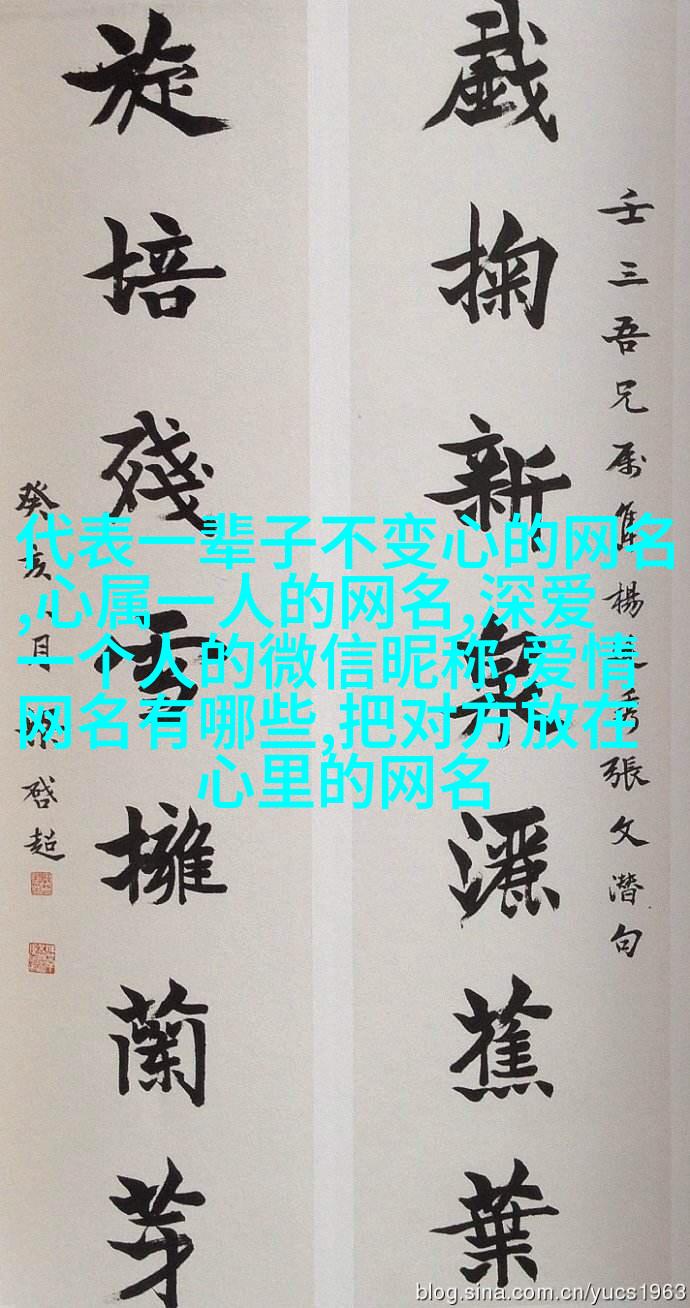 壬三吾兄属集楊秀張文潛句
戲掬新泉灑蕉葉
旋培殘雪擁蘭芽
癸亥月梁啓超
代表一辈子不变心的网名
,心属一人的网名,深爱
一个人的微信昵称,爱情
网名有哪些,把对方放在
心里的网名
blog.sina.com.cn/yucs1963